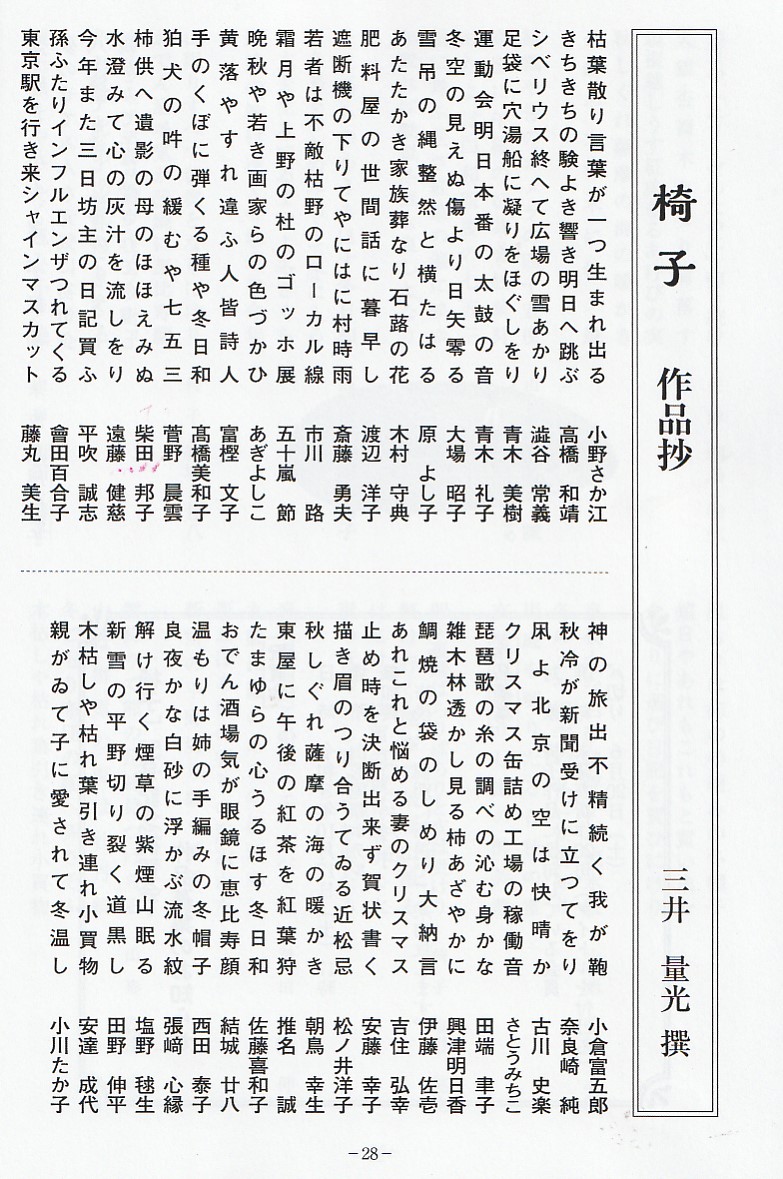 椅子 作品抄 三井 量光 撰
枯葉散り言葉が一つ生まれ出る 小野さか江
きちきちの験よき響き明日へ跳ぶ 高橋 和靖
シベリウス終へて広場の雪あかり 澁谷 常義
足袋に穴湯船に凝りをほぐしをり 青木 美樹
運動会明日本番の太鼓の音 青木 礼子
冬空の見えぬ傷より日矢零る 大場 昭子
雪吊の縄整然と横たはる 原 よし子
あたたかき家族葬なり石蕗の花 木村 守典
肥料屋の世間話に暮早し 渡辺 洋子
遮断機の下りてやにはに村時雨 斎藤 勇夫
若者は不敵枯野のローカル線 市川 路
霜月や上野の杜のゴッホ展 五十嵐 節
晩秋や若き画家らの色づかひ あぎよしこ
黄落やすれ違ふ人皆詩人 富樫 文子
手のくぼに弾くる種や冬日和 髙橋美和子
狛犬の吽の緩むや七五三 菅野 晨雲
柿供へ遺影の母のほほえみぬ 柴田 邦子
水澄みて心の灰汁を流しをり 遠藤 健慈
今年また三日坊主の日記買ふ 平吹 誠志
孫ふたりインフルエンザつれてくる 會田百合子
東京駅を行き来シャインマスカット 藤丸 美生
神の旅出不精続く我が鞄 小倉富五郎
秋冷が新聞受けに立つてをり 奈良崎 純
凩よ北京の空は快晴か 古川 史楽
クリスマス缶詰め工場の稼働音 さとうみちこ
琵琶歌の糸の調べの沁む身かな 田端 聿子
雑木林透かし見る柿あざやかに 興津明日香
鯛焼の袋のしめり大納言 伊藤 佐壱
あれこれと悩める妻のクリスマス 吉住 弘幸
止め時を決断出来ず賀状書く 安藤 幸子
描き眉のつり合うてゐる近松忌 松ノ井洋子
秋しぐれ薩摩の海の暖かき 朝鳥 幸生
東屋に午後の紅茶を紅葉狩 推名 誠
たまゆらの心うるほす冬日和 佐藤喜和子
おでん酒場気が眼鏡に恵比寿顔 結城 廿八
温もりは姉の手編みの冬帽子 西田 泰子
良夜かな白砂に浮かぶ流水紋 張﨑 心縁
解け行く煙草の紫煙山眠る 塩野 毬生
新雪の平野切り裂く道黒し 田野 伸平
木枯しや枯れ葉引き連れ小買物 安達 成代
親がゐて子に愛されて冬温し 小川たか子
－28－